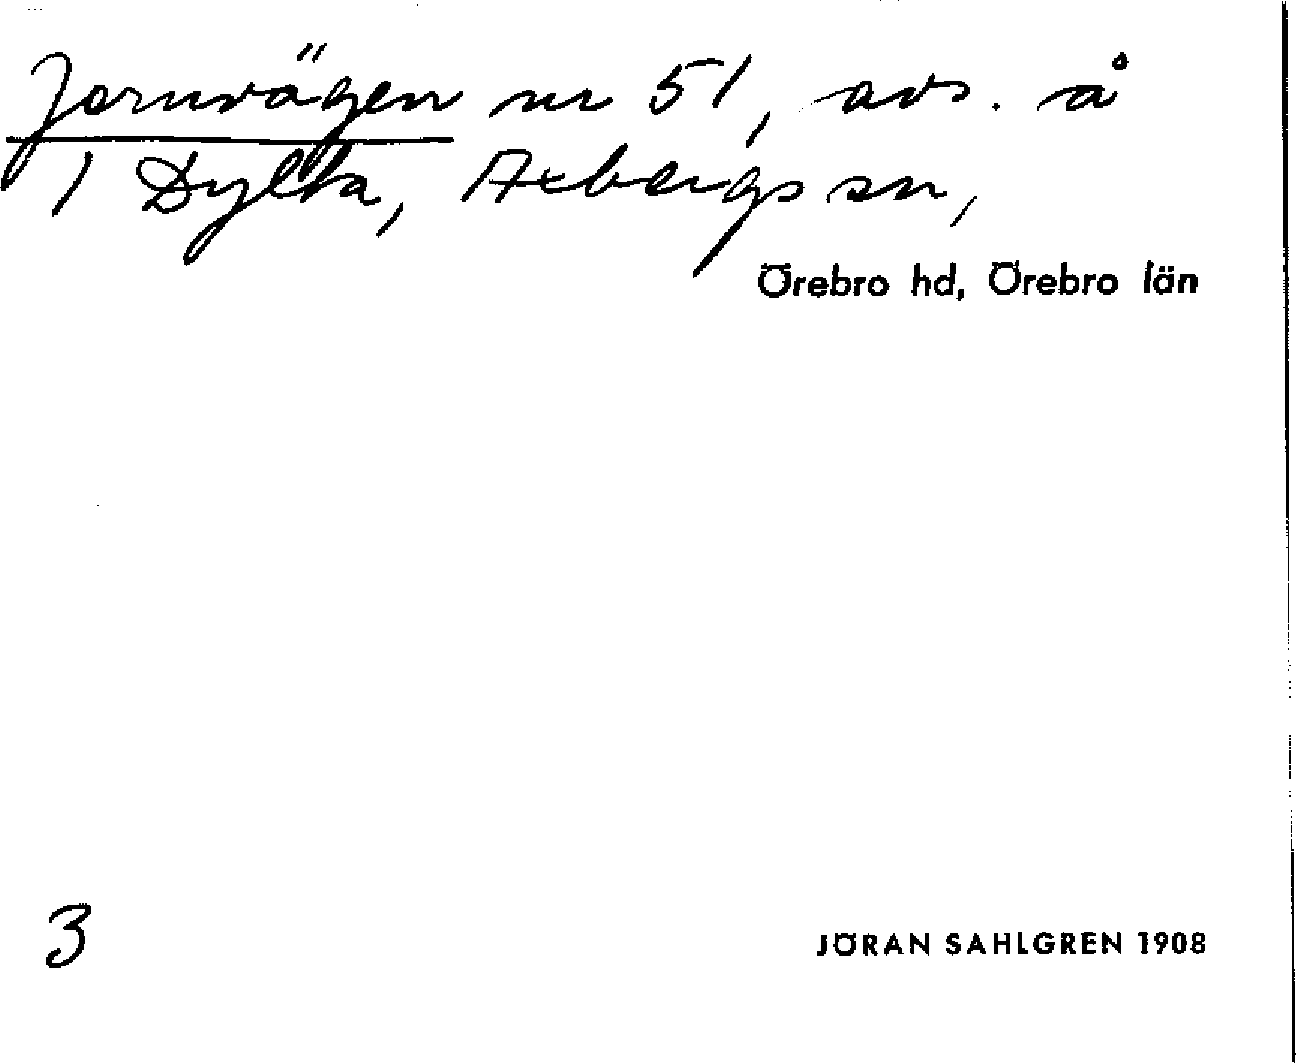 Jernvägen nr 51, avs. å
1 Dylta, Axbergs sn,
Örebro hd, Örebro län
3
JÖRAN SAHLGREN 1908